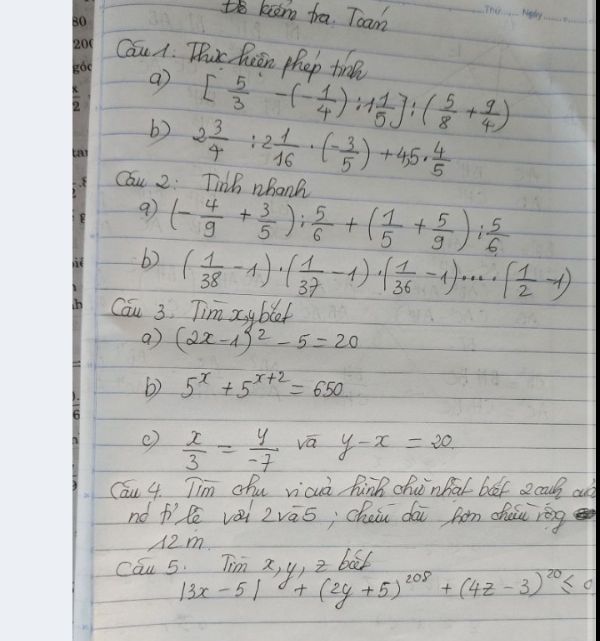 Đề kiểm tra. Toán
Thứ...... Ngày......
Câu 1. Thực hiện phép tính
a) [ 5/3 - (-1/4) : 1 1/5 ] : (5/8 + 9/4)
b) 2 3/4 : 2 1/16 . (-3/5) + 4,5 . 4/5
Câu 2: Tính nhanh
a) (-4/9 + 3/5) : 5/6 + (1/5 + 5/9) : 5/6
b) (1/38 - 1) . (1/37 - 1) . (1/36 - 1) .... (1/2 - 1)
Câu 3. Tìm x, y biết
a) (2x - 1)² - 5 = 20
b) 5^x + 5^(x+2) = 650
c) x/3 = y/-7 và y - x = 20.
Câu 4. Tìm chu vi của hình chữ nhật biết 2 cạnh của
nó tỉ lệ với 2 và 5 ; chiều dài hơn chiều rộng
12 m.
Câu 5. Tìm x, y, z biết
|3x - 5| + (2y + 5)^208 + (4z - 3)^20 ≤ 0